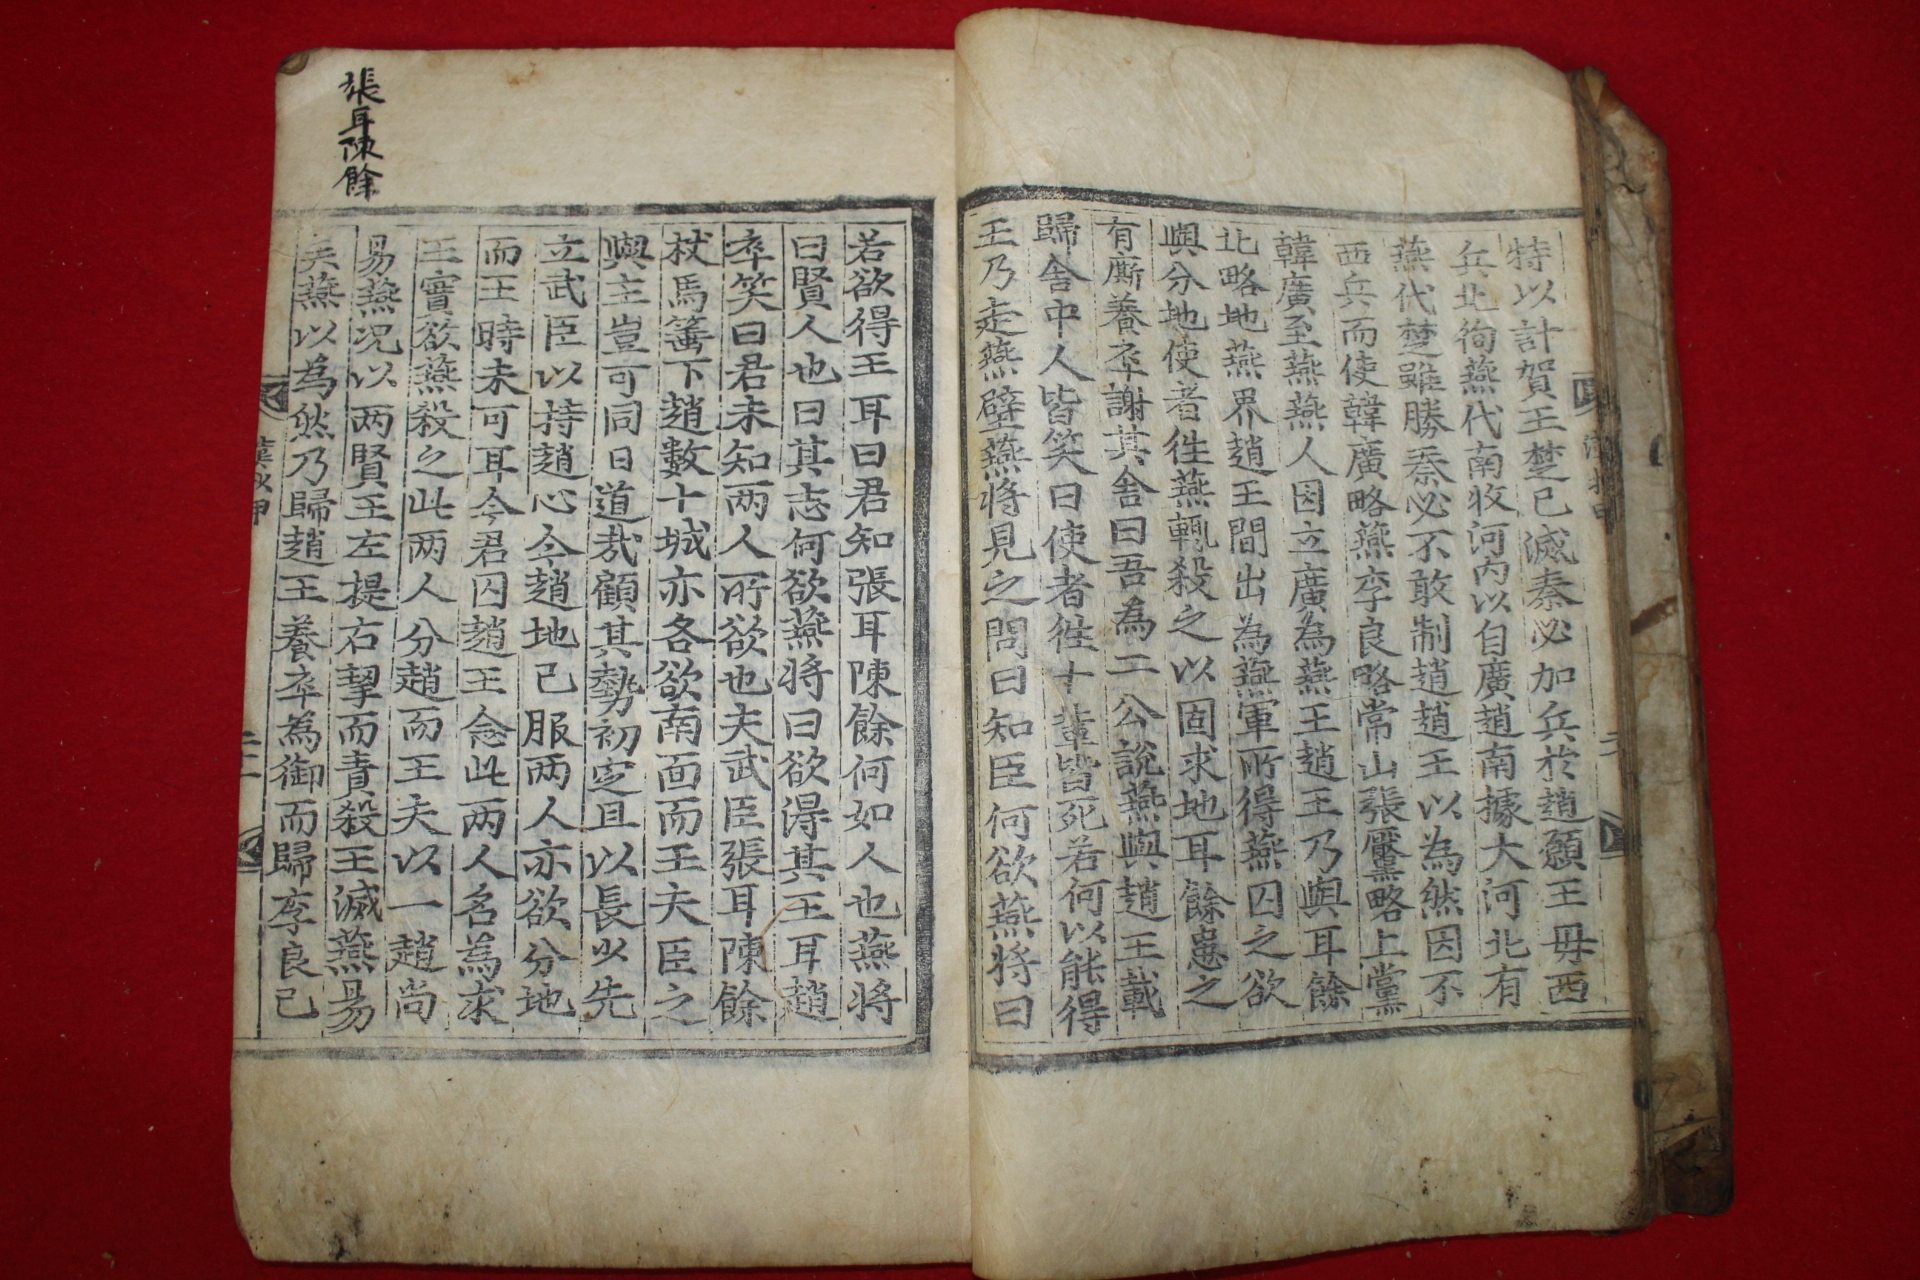 特以計賀王楚已滅秦必加兵於趙願王毋西
兵北徇燕代南收河內以自廣趙南據大河北有
燕代楚雖勝秦必不敢制趙趙王以為然因不
西兵而使韓廣略燕李良略常山張黶略上黨
韓廣至燕燕人因立廣為燕王趙王乃與耳餘
北略地燕界趙王間出為燕軍所得燕囚之欲
與分地使者往燕輒殺之以固求地耳餘患之
有廝養卒謝其舍曰吾為二公說燕與趙王載
歸舍中人皆笑曰使者往十輩皆死若何以能得
王乃走燕壁燕將見之問曰知臣何欲燕將曰
張耳陳餘
若欲得王耳曰君知張耳陳餘何如人也燕將
曰賢人也曰其志何欲燕將曰欲得其王耳趙
卒笑曰君未知两人所欲也夫武臣張耳陳餘
杖馬箠下趙數十城亦各欲南面而王夫臣之
與主豈可同日道㢤顧其勢初定且以長少先
立武臣以持趙心今趙地已服两人亦欲分地
而王時未可耳今君囚趙王念此两人名為求
王實欲燕殺之此两人分趙而王夫以一趙尚
易燕况以两賢王左提右挈而責殺王滅燕易
矣燕以為然乃歸趙王養卒為御而歸李良已